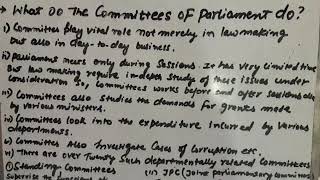 → What Do The Committees Of Parliament do?
i) Committee Play vital role not merely in law making
but also in day-to-day business.
ii) Parliament meets only during Sessions. It has very limited time
But law making require indepth study of these issues under
consideration so, Committees works before and after sessions also
iii) Committees also studies the demands for grants made
by various ministers.
iv) Committees look into the expenditure incurred by various
departments.
v) Committees Also Investigate Cases of Corruption etc.
vi) There are over Twenty Such departmentally related Committees
(i) Standing Committees (ii) JPC (Joint Parliamentary Committees)
Supervise the functions of